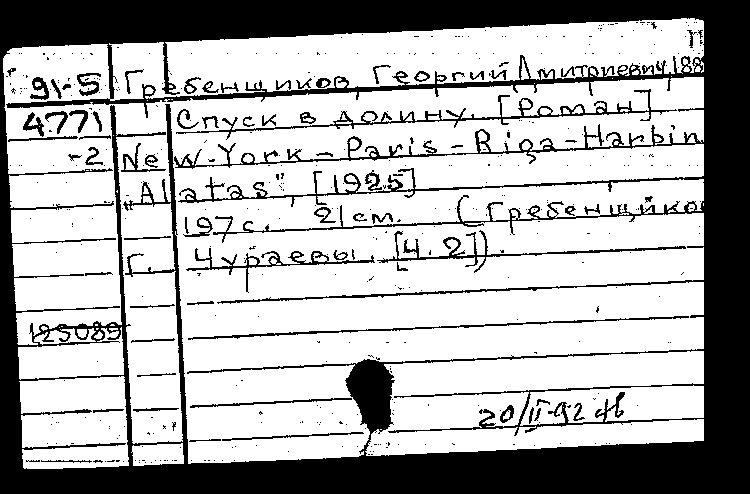 П
91-5 Гребенщиков, Георгий Дмитриевич, 188
4771 Спуск в долину. [Роман]
-2 New-York-Paris-Riga-Harbin
"Alatas", [1925]
197с. 21см. (Гребенщиков
Г. Чураевы. [Ч. 2]).
125089
20/II-92